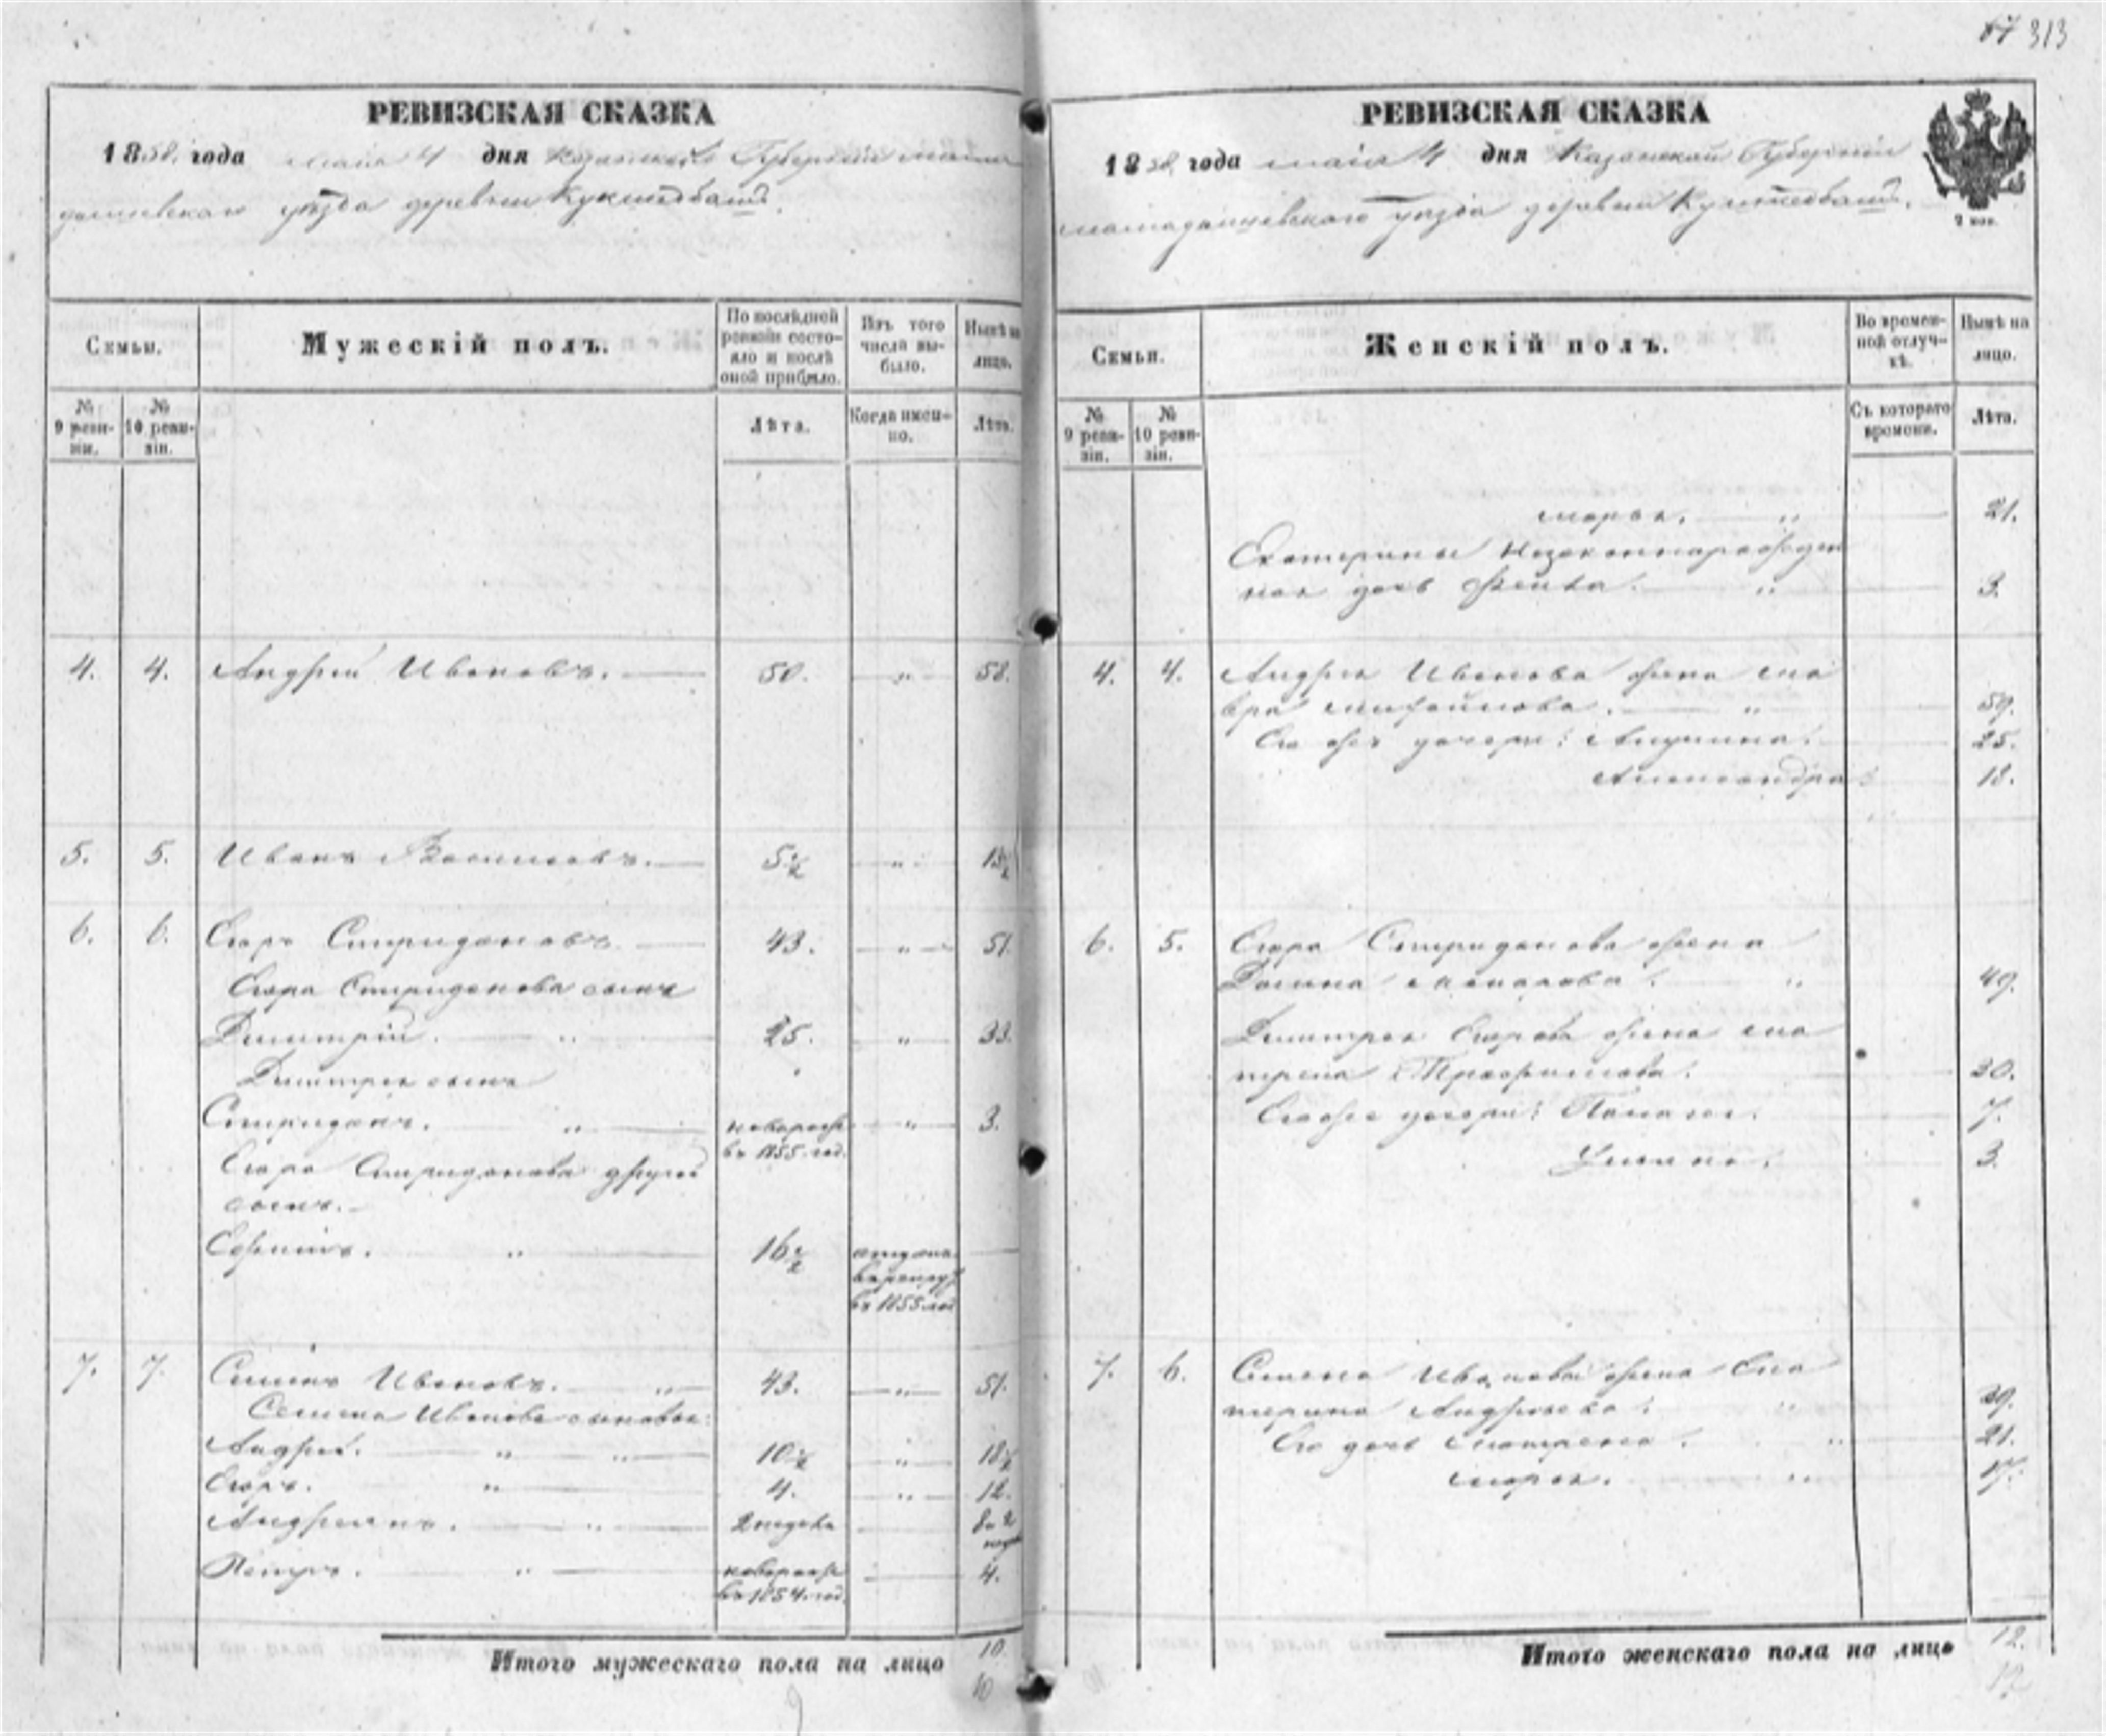 67 313
РЕВИЗСКАЯ СКАЗКА
1858 года маія 4 дня Казанской Губерніи мама
дышевскаго уѣзда деревни
Семьи.
Мужескій полъ.
По послѣдней ревизіи состояло и послѣ оной прибыло.
Изъ того числа выбыло.
Нынѣ на лицо.
№ 9 ревизіи.
№ 10 ревизіи.
Лѣта.
Когда именно.
Лѣта.
4. 4. Андрей Ивановъ. 50. " 58.
5. 5. Иванъ Васильевъ. 5½ " 13½
6. 6. Егоръ Спиридоновъ. 43. " 51.
Егора Спиридонова сынъ
Дмитрій. " 25. " 33.
Дмитрея сынъ
Спиридонъ. " новорож " 3.
въ 1855 год.
Егора Спиридонова другой
сынъ.
Ефимъ. " 16½ отданъ
въ рекруты
въ 1855 год
7. 7. Семенъ Ивановъ. " 43. " 51.
Семена Иванова сыновья:
Андрей. " " 10½ " 18½
Егоръ. " 4. " 12.
Андреянъ. " 2 недели 8 и 2
нед
Петръ. " новорож 4.
въ 1854 год.
Итого мужескаго пола на лицо 10.
10
РЕВИЗСКАЯ СКАЗКА
1858 года маія 4 дня Казанской Губерніи
мамадышевскаго уѣзда деревни
2 коп.
Семьи.
Женскій полъ.
Во временной отлучкѣ.
Нынѣ на лицо.
№ 9 ревизіи.
№ 10 ревизіи.
Съ котораго времени.
Лѣта.
марья. " 21.
Екатерины незаконнорожден
ная дочь " 3.
4. 4. Андрея Иванова жена Ма
вра Михайлова. " 59.
Его же дочери: Акулина. 25.
Александра 18.
6. 5. Егора Спиридонова жена
Домна " 49.
Дмитрея Егорова жена Ма
трена Трофимова. 30.
Его же дочери: Палагея. 7.
Ульяна. 3.
7. 6. Семена Иванова жена Ека
терина Андреева. " 39.
Его дочь Матрена. " 21.
марья. " 17.
Итого женскаго пола на лицо 12.
12.